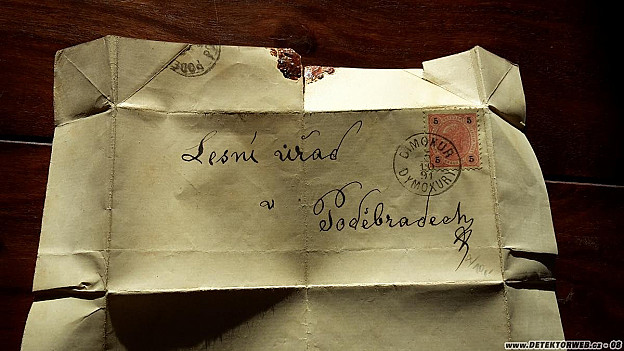 PODĚ
5 5
Lesní úřad
DIMOKUR
10
91
DYMOKURY
5 5
v Poděbradech
www.DETEKTORWEB.cz - 08